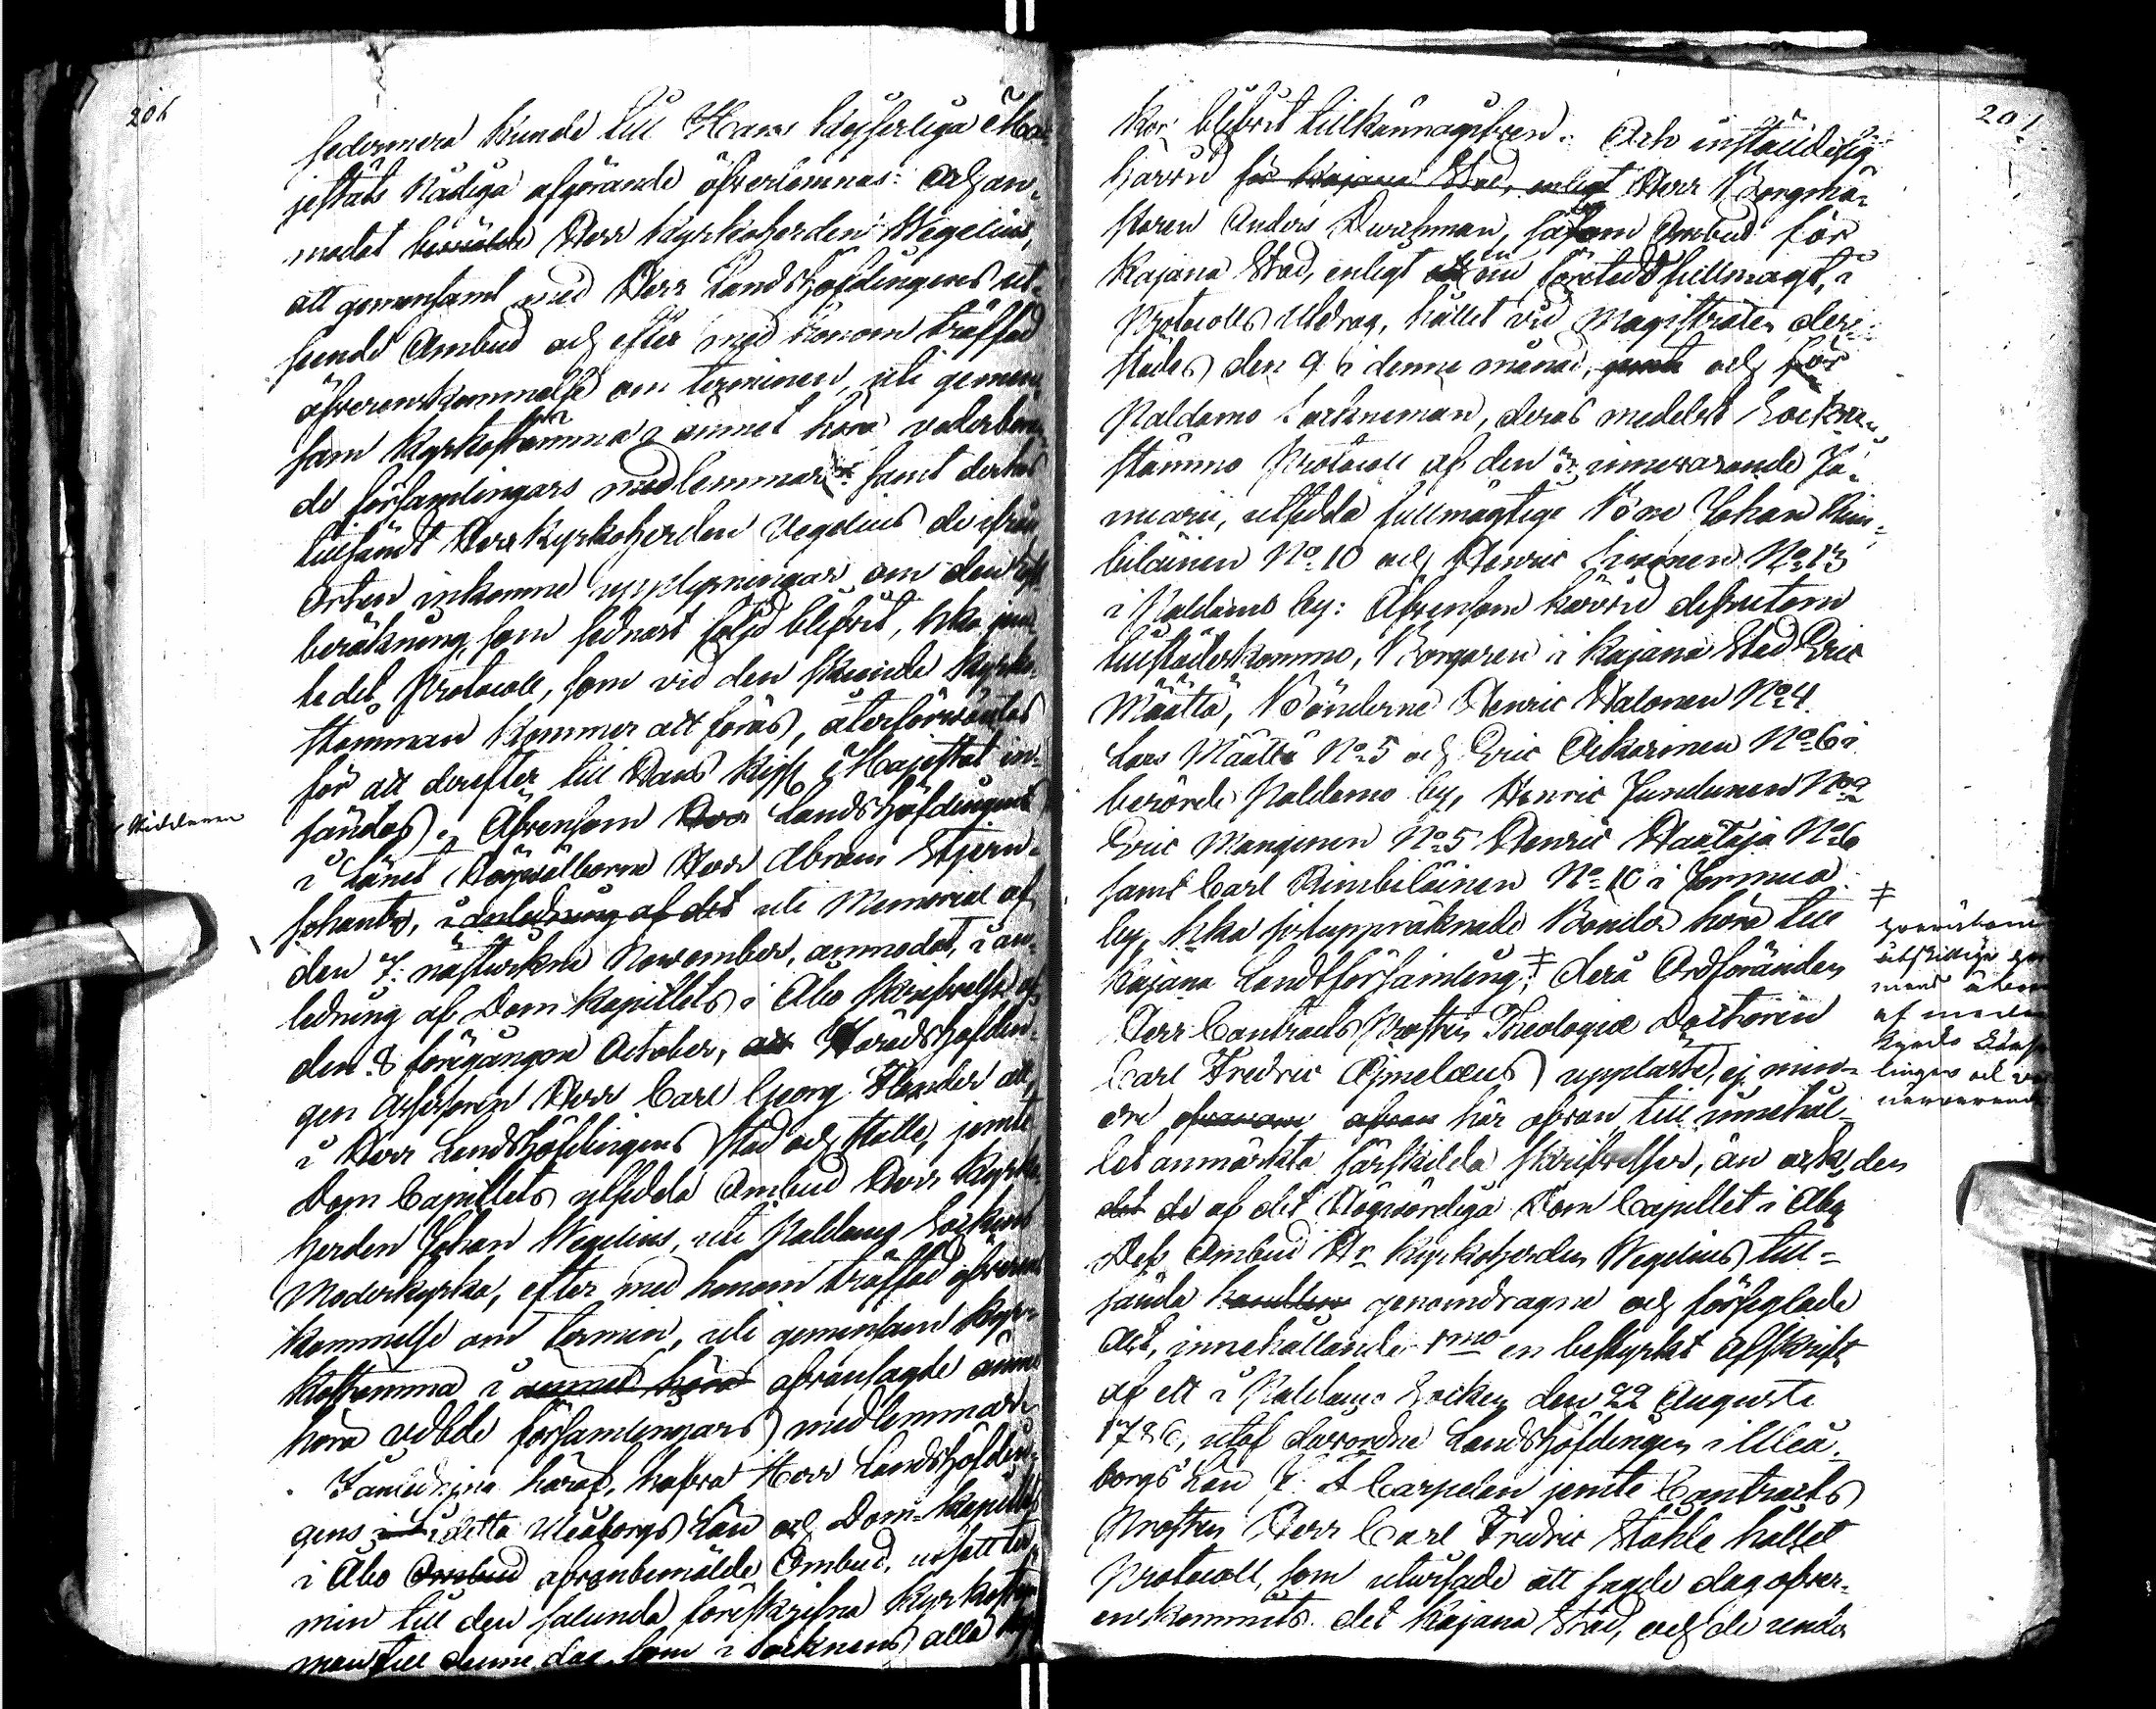 206
sedermera kunde till Hans Kejserliga Ma-
jestäts Nådiga afgörande öfverlemnas: Och an-
modat bemälde Herr Kyrkoherden Wegelius,
att gemensamt med Herr Landshöfdingens ut-
seende Ombud och efter med honom träffad
öfverenskommelse om terminen, uti gemen-
sam Kyrkostämma i ämnet höra vederböran-
de församlingars medlemmar samt dertill
tillsändt Herr Kyrkoherden Wegelius de ifrån
Orten inkomne upplysningar om den
beräkning, som sednast följd blifvit, hka jem-
te det Protocoll, som vid den skeende Kyrko-
stämman kommer att föras, återförväntas
för att derefter till Hans Kejs Majestät in-
sändas. Äfvensom Herr Landshöfdingen
Riddaren
i Länet Högvälborne Herr Abram Stjern-
schantz, i anledning af det uti Memorial af
den 7: nästvikne November, anmodat, i an-
ledning af Dom Kapitlets i Åbo skrifvelse af
den 8 föregångne October, att Häradshöfdin-
gen Assessorn Herr Carl Georg att
i Herr Landshöfdingens stad och ställe, jemte
Dom Capitlets utsedda Ombud Herr Kyrko-
herden Johan Wegelius, uti Paldamo Sockens
Moderkyrka, efter med honom träffad öfverens-
kommelse om termin, uti gemensam Kyr-
kostämma i ämnet höra ofvansagde ämne
höra vedbde församlingars medlemmar.
I anledning häraf, hafva Herr Landshöfdin-
gens i detta Uleåborgs Län och Dom-Kapitlets
i Åbo Ombud ofvanbemälde Ombud, utsatt ter-
min till den sålunda föreskrifna Kyrkostäm-
man till denne dag, som i Socknens alla
201
kor blifvit tillkännagifven: Och inställde sig
härvid för Kajana Stad, enligt Herr Borgmä-
staren Anders Durchman, såsom Ombud för
Kajana Stad, enligt en företedd fullmagt, i
Protocolls Utdrag, hållet vid Magistraten der-
städes den 9 i denne månad, jemte och för
Paldamo Sockneman, deras medelst Sockne-
stämmo Protocoll af den 3 innevarande Ja-
nuarii, utsedda fullmägtige Bönd Johan Kim-
biläinen No 10 och Henric No 13
i Paldamo by: Äfvensom härvid dessutom
tillstädeskommo, Borgaren i Kajana Stad Eric
Määttä, Bönderne Henric Halonen No 4
Lars Määttä No 5 och Eric Oikarinen No 6 i
berörde Paldamo by, Henric Juntunen No 2
Eric Manginen No 5 Henric Haataja No 6
samt Carl Kimbiläinen No 10 i Jormua
by, hka sistuppräknade Bönder höra till
Kajana Landtförsamling; ‡ dera Ordföranden
Herr Contracts Prosten Theologiæ Doctoren
Carl Fredric Ajmelæus uppläste, ej min-
dre ofvanom här ofvan till innehål-
let anmärkta särskilda skrifvelser, än ock, den
det de af det Högvördiga Dom Capitlet i Åbo
Dess Ombud Hr Kyrkoherden Wegelius till-
sände handlen genomdragne och förseglade
Act, innehållande 1mo en bestyrkt Afskrift
af ett i Paldamo Socken den 22 Augusti
1786, utaf davarande Landshöfdingen i Uleå-
borgs Län Carpelan jemte Contracts
Prosten Herr Carl Fredric Ståhle hållet
Protocoll, som utvisade att sagde dag öfver-
enskommits det Kajana Stad, och de under
‡
utskillige
af
lingar och
närvarande